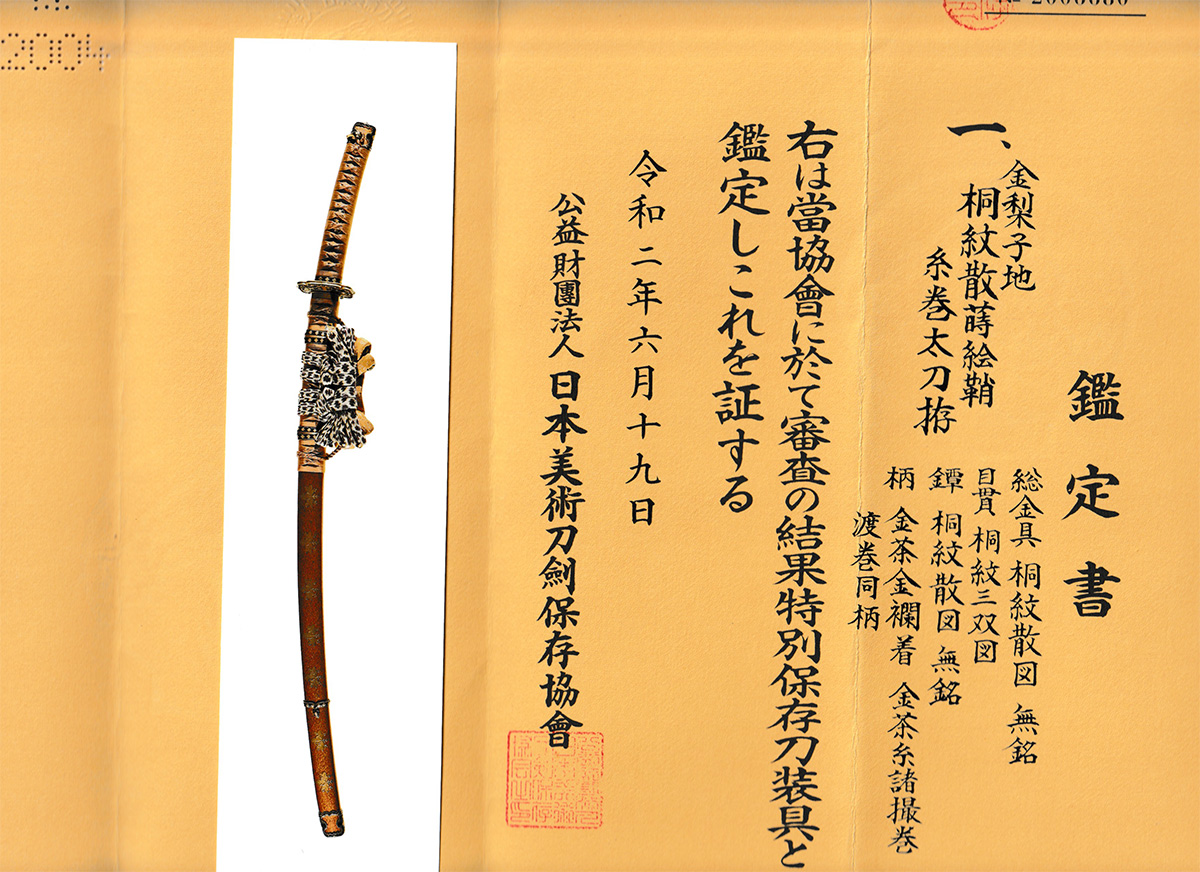 鑑定書
一、金梨子地
桐紋散蒔絵鞘
糸巻太刀拵
総金具 桐紋散図 無銘
目貫 桐紋三双図
鐔 桐紋散図 無銘
柄 金茶金襴着 金茶糸諸撮巻
渡巻同柄
右は當協會に於て審査の結果特別保存刀装具と
鑑定しこれを証する
令和二年六月十九日
公益財團法人日本美術刀劍保存協會
2004